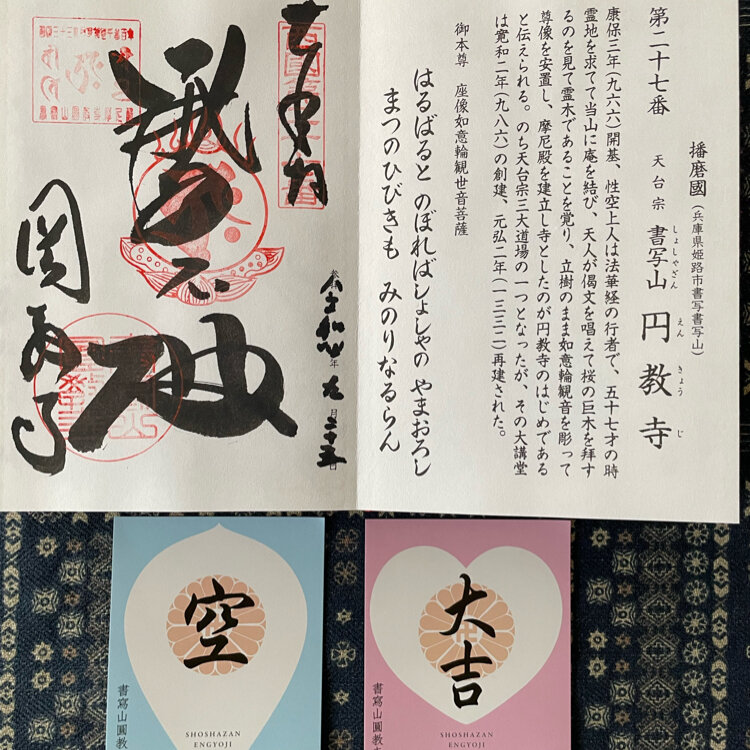 播磨國(兵庫県姫路市書写書写山)
第二十七番 天台宗 書写山 円教寺
しょしゃざん えん きょう じ
康保三年(九六六)開基、性空上人は法華経の行者で、五十七才の時
霊地を求てて当山に庵を結び、天人が偈文を唱えて桜の巨木を拝す
るのを見て霊木であることを覚り、立樹のまま如意輪観音を彫って
尊像を安置し、摩尼殿を建立し寺としたのが円教寺のはじめである
と伝えられる。のち天台宗三大道場の一つとなったが、その大講堂
は寛和二年(九八六)の創建、元弘二年(一三三二)再建された。
御本尊 座像如意輪観世音菩薩
はるばると のぼればしょしゃの やまおろし
まつのひびきも みのりなるらん
年 月
圓教寺
空
書寫山圓教
SHOSHAZAN
ENGYOJI
大吉
書寫山圓教
SHOSHAZAN
ENGYOJI